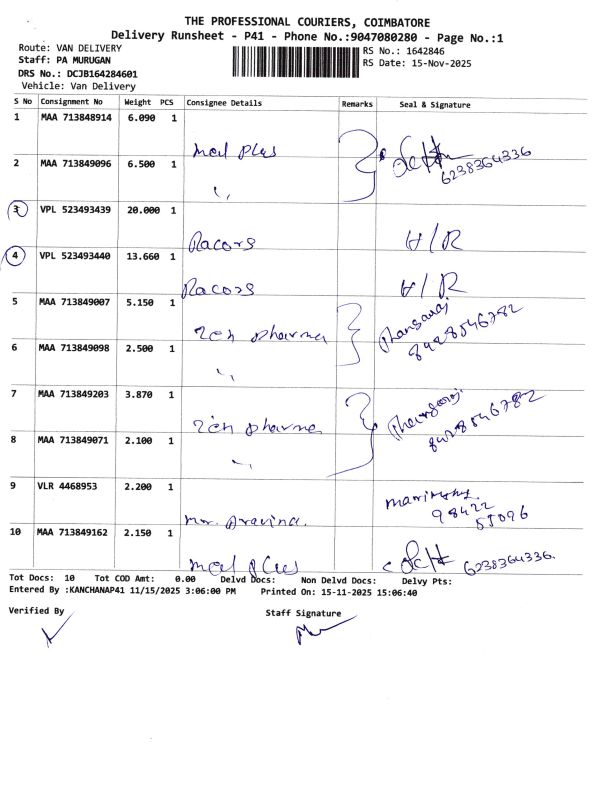 THE PROFESSIONAL COURIERS, COIMBATORE
Delivery Runsheet - P41 - Phone No.:9047080280 - Page No.:1
Route: VAN DELIVERY
RS No.: 1642846
Staff: PA MURUGAN
RS Date: 15-Nov-2025
DRS No.: DCJB164284601
Vehicle: Van Delivery
S No Consignment No Weight PCS Consignee Details Remarks Seal & Signature
1 MAA 713848914 6.090 1 Med Plus
6238364336
2 MAA 713849096 6.500 1 〃
3 VPL 523493439 20.000 1 Racors H/R
4 VPL 523493440 13.660 1 Racors H/R
5 MAA 713849007 5.150 1 Zen pharma
8428546782
6 MAA 713849098 2.500 1 〃
7 MAA 713849203 3.870 1 Zen pharma
8428546782
8 MAA 713849071 2.100 1 〃
9 VLR 4468953 2.200 1 Mr. Aravind.
98422
55096
10 MAA 713849162 2.150 1 Med Plus 6238364336.
Tot Docs: 10 Tot COD Amt: 0.00 Delvd Docs: Non Delvd Docs: Delvy Pts:
Entered By :KANCHANAP41 11/15/2025 3:06:00 PM Printed On: 15-11-2025 15:06:40
Verified By Staff Signature